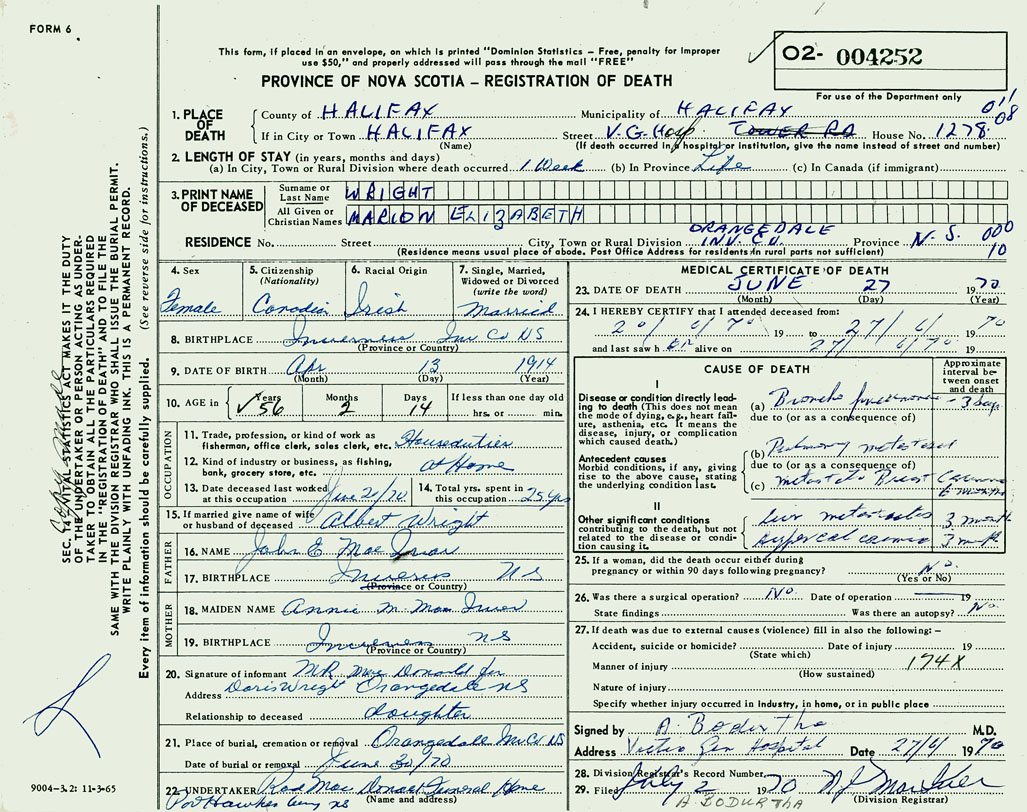 FORM 6
This form, if placed in an envelope, on which is printed "Dominion Statistics – Free, penalty for improper
use $50," and properly addressed will pass through the mail "FREE"
PROVINCE OF NOVA SCOTIA – REGISTRATION OF DEATH
O2- 004252
For use of the Department only
1. PLACE OF DEATH
County of HALIFAX Municipality of HALIFAX 011
If in City or Town HALIFAX Street V.G. Hosp. TOWER RD House No. 1278 08
(Name) (If death occurred in a hospital or institution, give the name instead of street and number)
2. LENGTH OF STAY (in years, months and days)
(a) In City, Town or Rural Division where death occurred 1 Week (b) In Province Life (c) In Canada (if immigrant)
3. PRINT NAME OF DECEASED
Surname or Last Name WRIGHT
All Given or Christian Names MARION ELIZABETH
ORANGEDALE
RESIDENCE No. Street City, Town or Rural Division INV. CO. Province N.S. 000
(Residence means usual place of abode. Post Office Address for residents in rural parts not sufficient) 10
4. Sex Female
5. Citizenship (Nationality) Canadian
6. Racial Origin Irish
7. Single, Married, Widowed or Divorced (write the word) Married
8. BIRTHPLACE Inverness Inv Co NS
(Province or Country)
9. DATE OF BIRTH Apr 13 1914
(Month) (Day) (Year)
10. AGE in Years 56 Months 2 Days 14 If less than one day old
hrs. or min.
OCCUPATION
11. Trade, profession, or kind of work as
fisherman, office clerk, sales clerk, etc. Houseduties
12. Kind of industry or business, as fishing,
bank, grocery store, etc. at Home
13. Date deceased last worked
at this occupation June 20/70
14. Total yrs. spent in
this occupation 25 yrs
15. If married give name of wife
or husband of deceased Albert Wright
FATHER
16. NAME John E Mac
17. BIRTHPLACE NS
(Province or Country)
MOTHER
18. MAIDEN NAME Annie M. Mac
19. BIRTHPLACE Inverness NS
(Province or Country)
20. Signature of informant MR Mac Donald for
Address Doris Wright Orangedale NS
Relationship to deceased daughter
21. Place of burial, cremation or removal Orangedale Inv Co NS
Date of burial or removal June 30/70
22. UNDERTAKER Rod Mac Donald Funeral Home
(Name and address)
Port Hawkesbury NS
MEDICAL CERTIFICATE OF DEATH
23. DATE OF DEATH JUNE 27 1970
(Month) (Day) (Year)
24. I HEREBY CERTIFY that I attended deceased from:
20/6/70 19 to 27/6/ 1970
and last saw h er alive on 27/6/70 19
CAUSE OF DEATH
Approximate interval between onset and death
I
Disease or condition directly leading to death (This does not mean the mode of dying, e.g., heart failure, asthenia, etc. It means the disease, injury, or complication which caused death.)
(a) Broncho pneumonia - 3 days
due to (or as a consequence of)
Antecedent causes
Morbid conditions, if any, giving rise to the above cause, stating the underlying condition last.
(b) Pulmony metastases
due to (or as a consequence of)
(c) Breast Carcinoma
6 months
II
Other significant conditions
contributing to the death, but not related to the disease or condition causing it.
metastases 3 month
3 month
25. If a woman, did the death occur either during
pregnancy or within 90 days following pregnancy? No.
(Yes or No)
26. Was there a surgical operation? No. Date of operation 19
State findings Was there an autopsy? No
27. If death was due to external causes (violence) fill in also the following: –
Accident, suicide or homicide? Date of injury 19
(State which)
Manner of injury 174X
(How sustained)
Nature of injury
Specify whether injury occurred in industry, in home, or in public place
Signed by A. Bodurtha M.D.
Address Victoria Gen Hospital Date 27/6/ 1970
28. Division Registrar's Record Number
29. Filed July 2 1970
(Division Registrar)
A. BODURTHA
SEC. 14 VITAL STATISTICS ACT MAKES IT THE DUTY
OF THE UNDERTAKER OR PERSON ACTING AS UNDER-
TAKER TO OBTAIN ALL THE PARTICULARS REQUIRED
IN THE "REGISTRATION OF DEATH" AND TO FILE THE
SAME WITH THE DIVISION REGISTRAR WHO SHALL ISSUE THE BURIAL PERMIT.
WRITE PLAINLY WITH UNFADING INK. THIS IS A PERMANENT RECORD.
Every item of information should be carefully supplied. (See reverse side for instructions.)
9004-3.2: 11-3-65